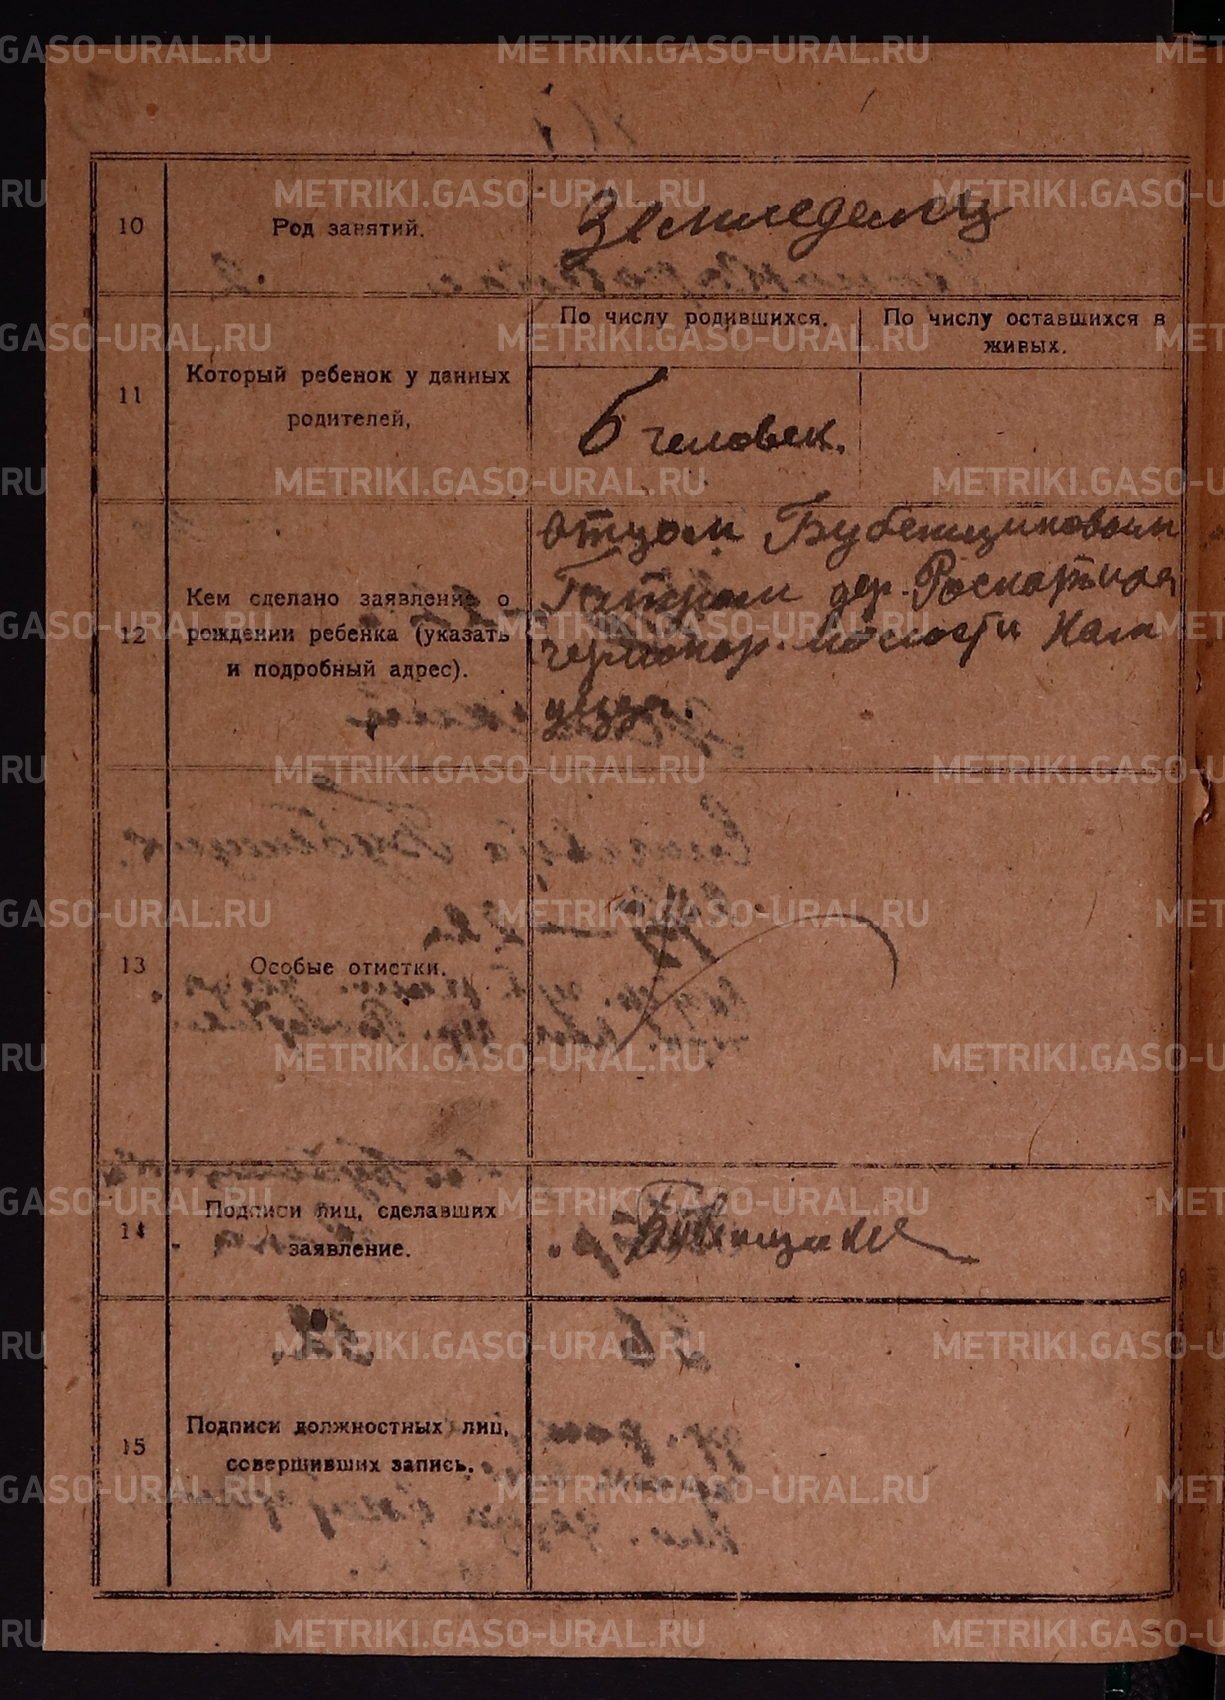 METRIKI.GASO-URAL.RU
10
Род занятий.
Земледелец
11
Который ребенок у данных
родителей,
По числу родившихся.
По число оставшихся в
живых.
6 человек.
12
Кем сделано заявление о
рождении ребенка (указать
и подробный адрес).
отцом Бубенщиковым
дер.
волости Кам
уезда.
13
Особые отметки.
14
Подписи лиц, сделавших
заявление.
15
Подписи должностных лиц,
совершивших запись.